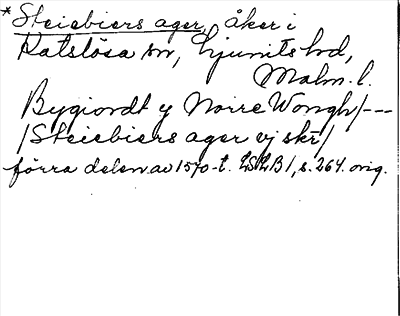 * Steiebiers ager, åker i
Katslösa sn, Ljunits hd,
Malm. l.
Bygiordt y Norre Wongh /---
/Steiebiers ager vj skr/
förra delen av 1570-t. LSLB 1, s. 264. orig.